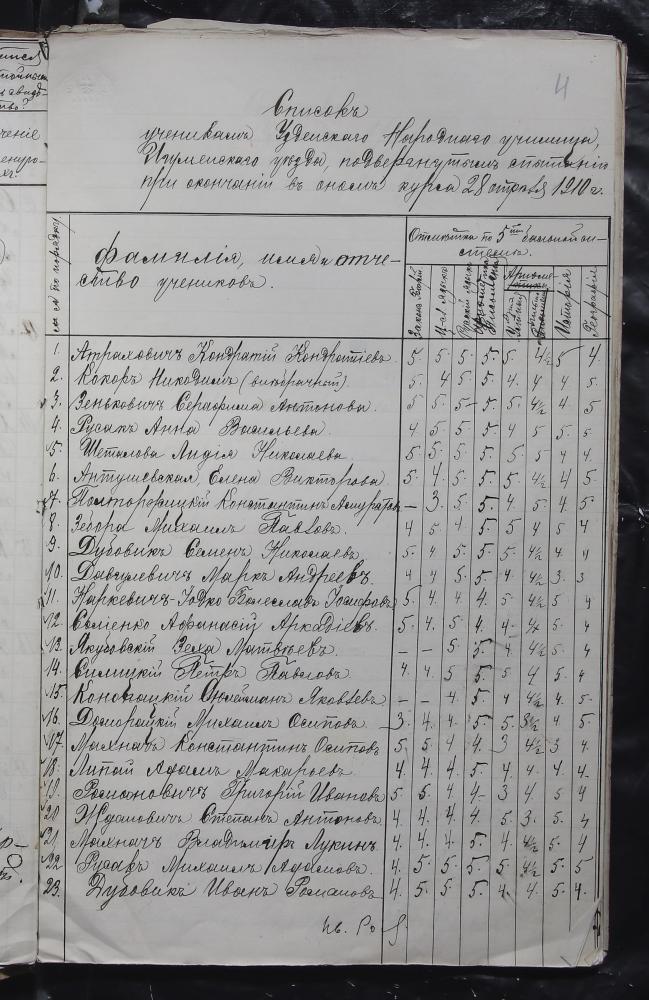 4
Списокъ
ученикамъ Узденскаго Народнаго училища,
Игуменскаго уѣзда, подвергнутымъ
при окончаніи въ ономъ курса 28 1910 г.
по порядку
Фамилія, имя и отче-
ство учениковъ.
Отмѣтка по 5ти бальной си-
стемѣ.
Законъ Божій
Ц-сл. языкъ
Русскій языкъ
Исторія
Географія
1. Атраховичъ Кондратій Кондратіевъ. 5 5. 5. 5. 5. 4½ 5 4
2. Кокоръ Никодимъ 5. 4 5 5. 4 4 4 5
3. Зеньковичъ Серафима Антонова. 5 5. 5 5. 5. 4½ 4. 5
4. Русакъ Анна Васильева. 4 5 5 5. 4 5 5 5
5. Шеталова Лидія Николаева 5 5 5 5. 5 5 4 4
6. Антушевская Елена Викторова 5. 4 5. 5. 5. 4½ 4 5
7. Константинъ — 3. 5. 5. 4 5. 4. 5
8. Михаилъ Павловъ. 4 5. 4 5. 5 4 5 4
9. Дубовикъ Семенъ Николаевъ 5. 4 5. 5. 5. 4½ 4. 4
10. Давгулевичъ Маркъ Андреевъ. 4 4 5. 5. 4 4½ 3. 3
11. Наркевичъ-Іодко Болеславъ Іосифовъ 5. 4. 4. 4. 5. 4½ 5 4
12. Аѳанасій Аркадіевъ. 5. 4. 5. 4. 4. 4½ 5. 4
13. Якубовскій Матвѣевъ. — — 5. 5. 4 4½ 5. 4
14. Силицкій Петръ Павловъ 4. 4. 5 5. 5 4 5. 4
15. Сулейманъ Яковлевъ — — 4 5. 4 4½ 4. 5.
16. Доморацкій Михаилъ Осиповъ 3. 4. 4. 5. 5. 3½ 4 5.
17. Махначъ Константинъ Осиповъ 5 5. 4 4. 3 4½ 3 4
18. Липай Адамъ Макарьевъ 4. 4. 4. 5. 4. 4. 4. 4.
19. Романовичъ Григорій Ивановъ 5. 5. 4 4. 3 4. 5 4
20. Ждановичъ Степанъ Антоновъ 4. 4. 4. 4. 5. 3. 5. 4
21. Махначъ Владиміръ Лукинъ 4. 4. 4. 5. 4. 4½ 5. 4
22. Русакъ Михаилъ Адамовъ. 4. 5. 5. 5. 5. 4½ 5. 5
23. Дубовикъ Иванъ Романовъ 4. 5. 5. 5. 4. 4. 5. 4.